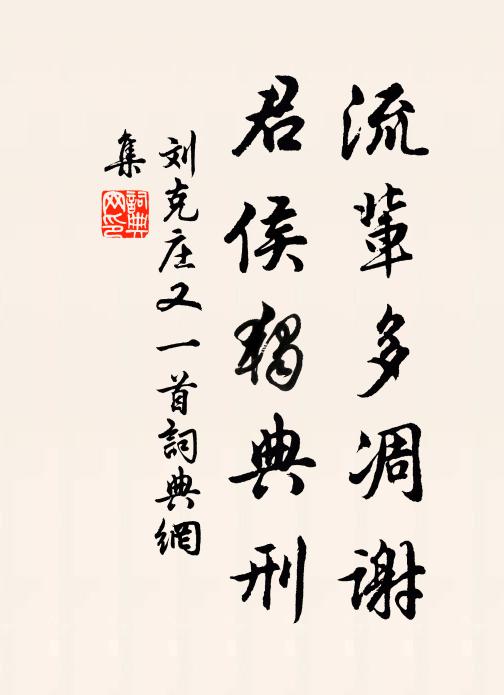 流輩多凋谢
君侯獨典刑
刘克庄又一首詞典網
集
詞典
网印